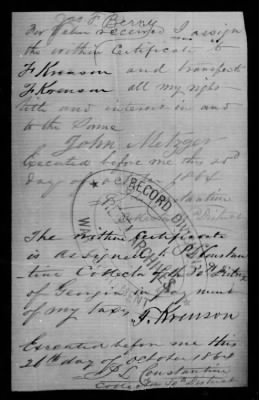 Jas T Berry
For Value received I assign
the within Certificate to
F Krenson and transfer
F Krenson all my right
title and interest in and
to the Same
John Metzger
Executed before me this
day of October 1864
Constantine
Collector District
RECORD DIVISION
The within Certificate
is assigned P L Constan
tine Collector
of Georgia in pay ment
of my taxes F. Krenson
Executed before me this
26th day of October 1864
P L Constantine
Collector District